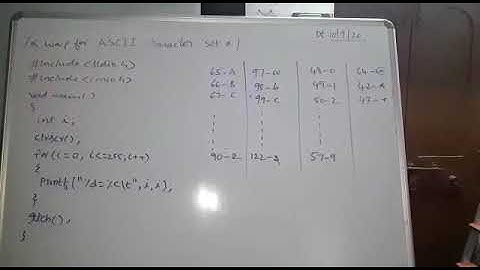 /* wap for ASCII character set */
Dt 10/9/20
#include<stdio.h>
#include<conio.h>
void main()
{
int i;
clrscr();
for(i=0; i<=255; i++)
{
printf("%d=%c\t", i, i);
}
getch();
}
65-A 97-a 48-0 64-@
66-B 98-b 49-1 42-*
67-C 99-c 50-2 43-+
90-Z 122-z 57-9